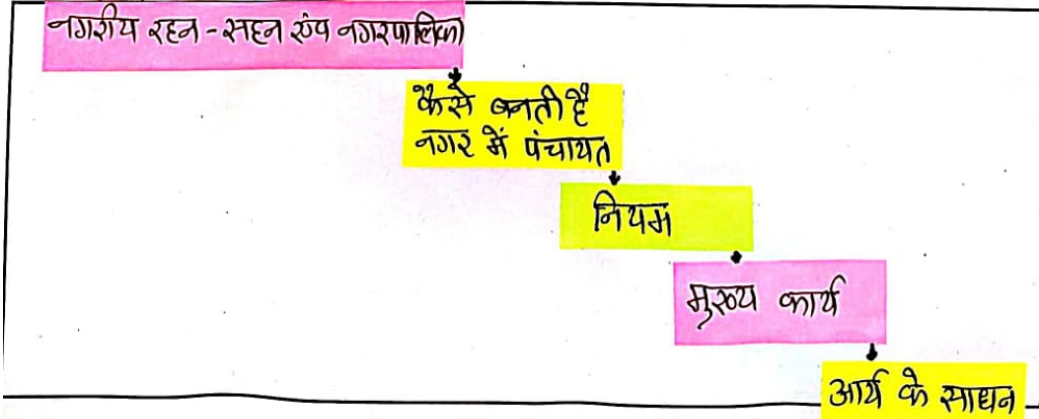 नगरीय रहन-सहन एंव नगरपालिका
कैसे बनती है
नगर में पंचायत
नियम
मुख्य कार्य
आर्य के साधन